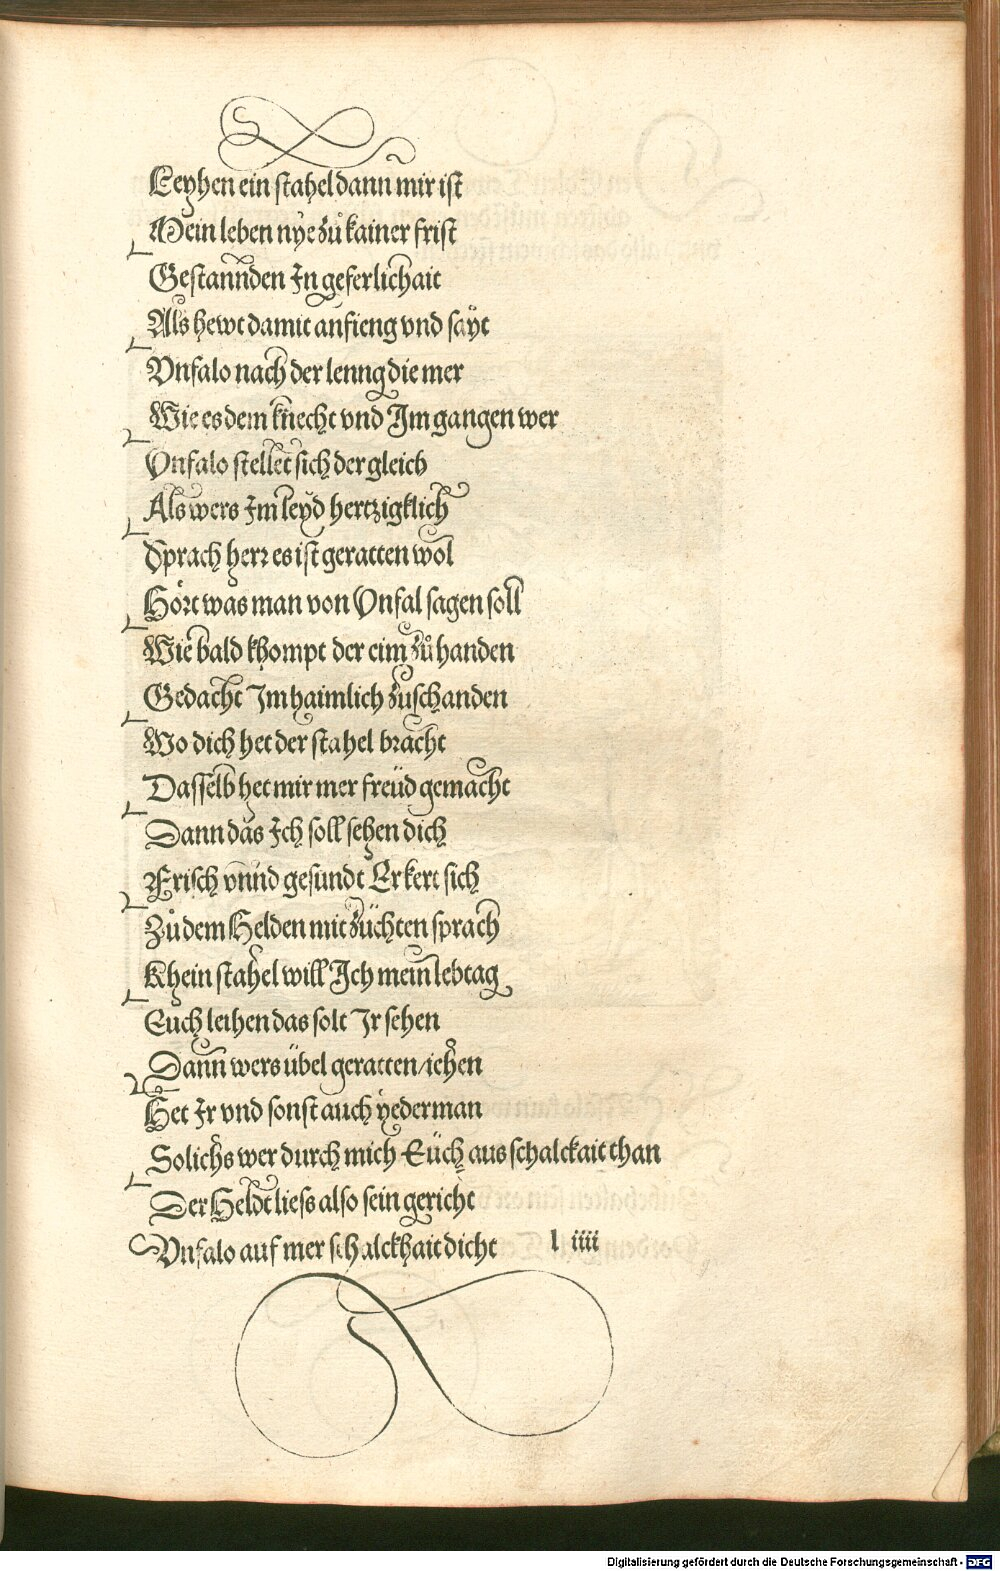 Leyhen ein stahel dann mir ist
Mein leben nye zů kainer frist
Gestannden In geferlichait
Als hewt damit anfieng vnd saÿt
Vnfalo nach der lenng die mer
Wie es dem knecht vnd Im gangen wer
Vnfalo stellet sich der gleich
Als wers Im leyd hertzigklich
Sprach herr es ist geratten wol
Hört was man von Vnfal sagen soll
Wie bald khompt der eim zů handen
Gedacht Im haimlich zuschanden
Wo dich het der stahel bracht
Dasselb het mir mer freüd gemacht
Dann das Ich soll sehen dich
Frisch vnnd gesundt Er kert sich
Zů dem Helden mit züchten sprach
Khein stahel will Ich mein lebtag
Euch leihen das solt Ir sehen
Dann wers übel geratten / iehen
Het Ir vnd sonst auch yederman
Solichs wer durch mich Eüch aus schalckait than
Der Heldt liess also sein gericht
Vnfalo auf mer schalckhait dicht l iiii
Digitalisierung gefördert durch die Deutsche Forschungsgemeinschaft - DFG